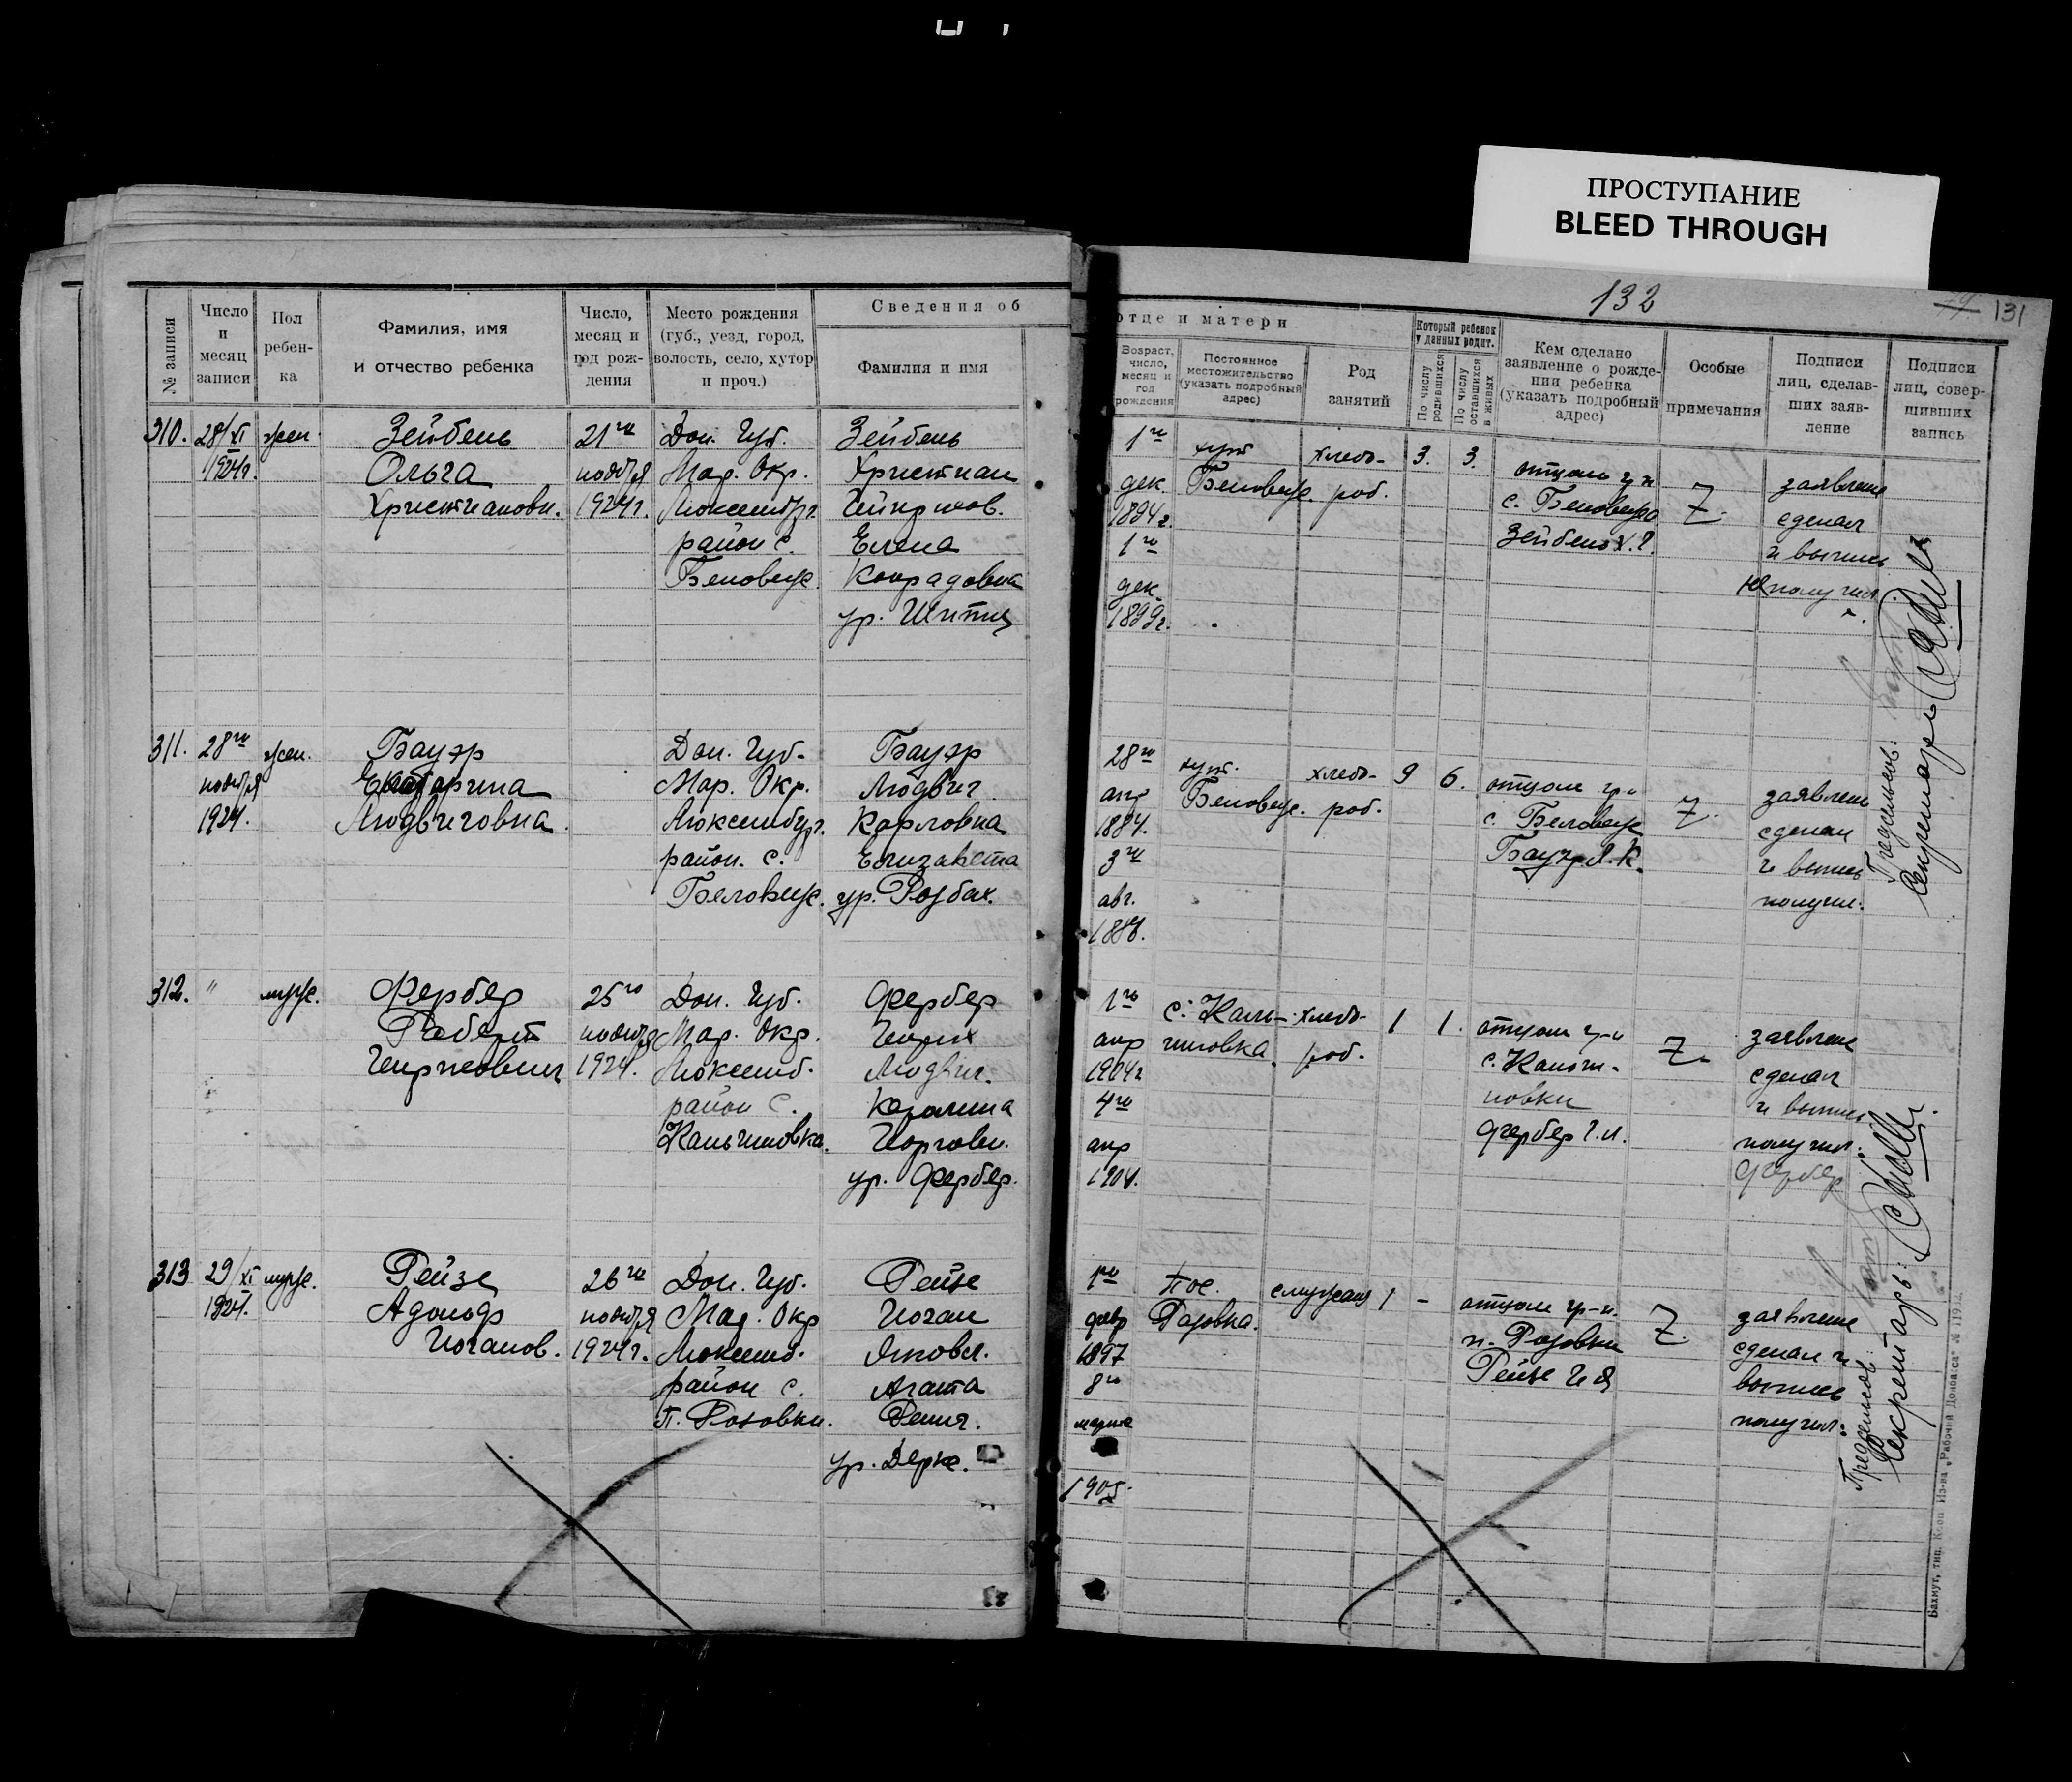 ПРОСТУПАНИЕ
BLEED THROUGH
132
131
№ записи
Число
и
месяц
записи
Пол
ребен-
ка
Фамилия, имя
и отчество ребенка
Число,
месяц и
год рож-
дения
Место рождения
(губ., уезд, город,
волость, село, хутор
и проч.)
Сведения об
Фамилия и имя
отце и матери
Возраст,
число,
месяц и
год
рождения
Постоянное
местожительство
(указать подробный
адрес)
Род
занятий
Который ребенок
у данных родит.
По числу
родившихся
По числу
оставшихся
в живых
Кем сделано
заявление о рожде-
нии ребенка
(указать подробный
адрес)
Особые
примечания
Подписи
лиц, сделав-
ших заяв-
ление
Подписи
лиц, совер-
шивших
запись
310. 28/XI жен Зейбель 21го Дон. Губ. Зейбель
1924г. Ольга ноября Мар. Окр. Христиан
Христиановн. 1924г. Люксембург.
район с. Елена
Беловеж. Конрадовна
ур.
1го хут хлебо- 3. 3. отцом гр-н заявление
дек. Беловеж. роб. с. Беловежа сделал
1894г. Зейбель Х. Г. и выпись
1го получил
дек.
1899г.
311. 28го жен. Бауэр Дон. Губ. Бауэр
ноября Екатерина Мар. Окр. Людвиг
1924. Людвиговна. Люксембург. Карловна
район. с. Елизавета
Беловеж. ур. Розбах.
28го хут. хлебо- 9 6. отцом гр-н заявлен
апр Беловеж. роб. с. Беловеж сделал
1884. Бауэр Л. К. и выпись
3го получил.
авг.
312. " муж. Фербер 25го Дон. Губ. Фербер
Роберт ноября Мар. Окр. Генрих
Генрихович 1924. Люксемб. Людвиг.
район с. Каролина
Кальчиновка. Георговн.
ур. Фербер.
1го с. Каль- хлебо- 1 1. отцом гр-н заявлене
апр чиновка. роб. с. Кальчи- сделал
1904г новки и выпись
4го Фербер Г. Л. получил:
апр Фербер
1904.
313 29/XI муж. Рейзе 26го Дон. Губ. Рейзе
1924. Адольф ноября Мар. Окр Иоган
Иоганов. 1924г. Люксемб. Яковл.
район с. Агата
П. Розовки.
ур. Дерк.
1го Пос. служащ 1 - отцом гр-н. заявлене
февр Розовка. п. Розовки сделал и
1897 Рейзе И Я выпись
8го получил:
марта
1905.
Секретарь
Секретарь:
Бахмут, тип. Кооп Из-ва „Рабочий Донбасса“